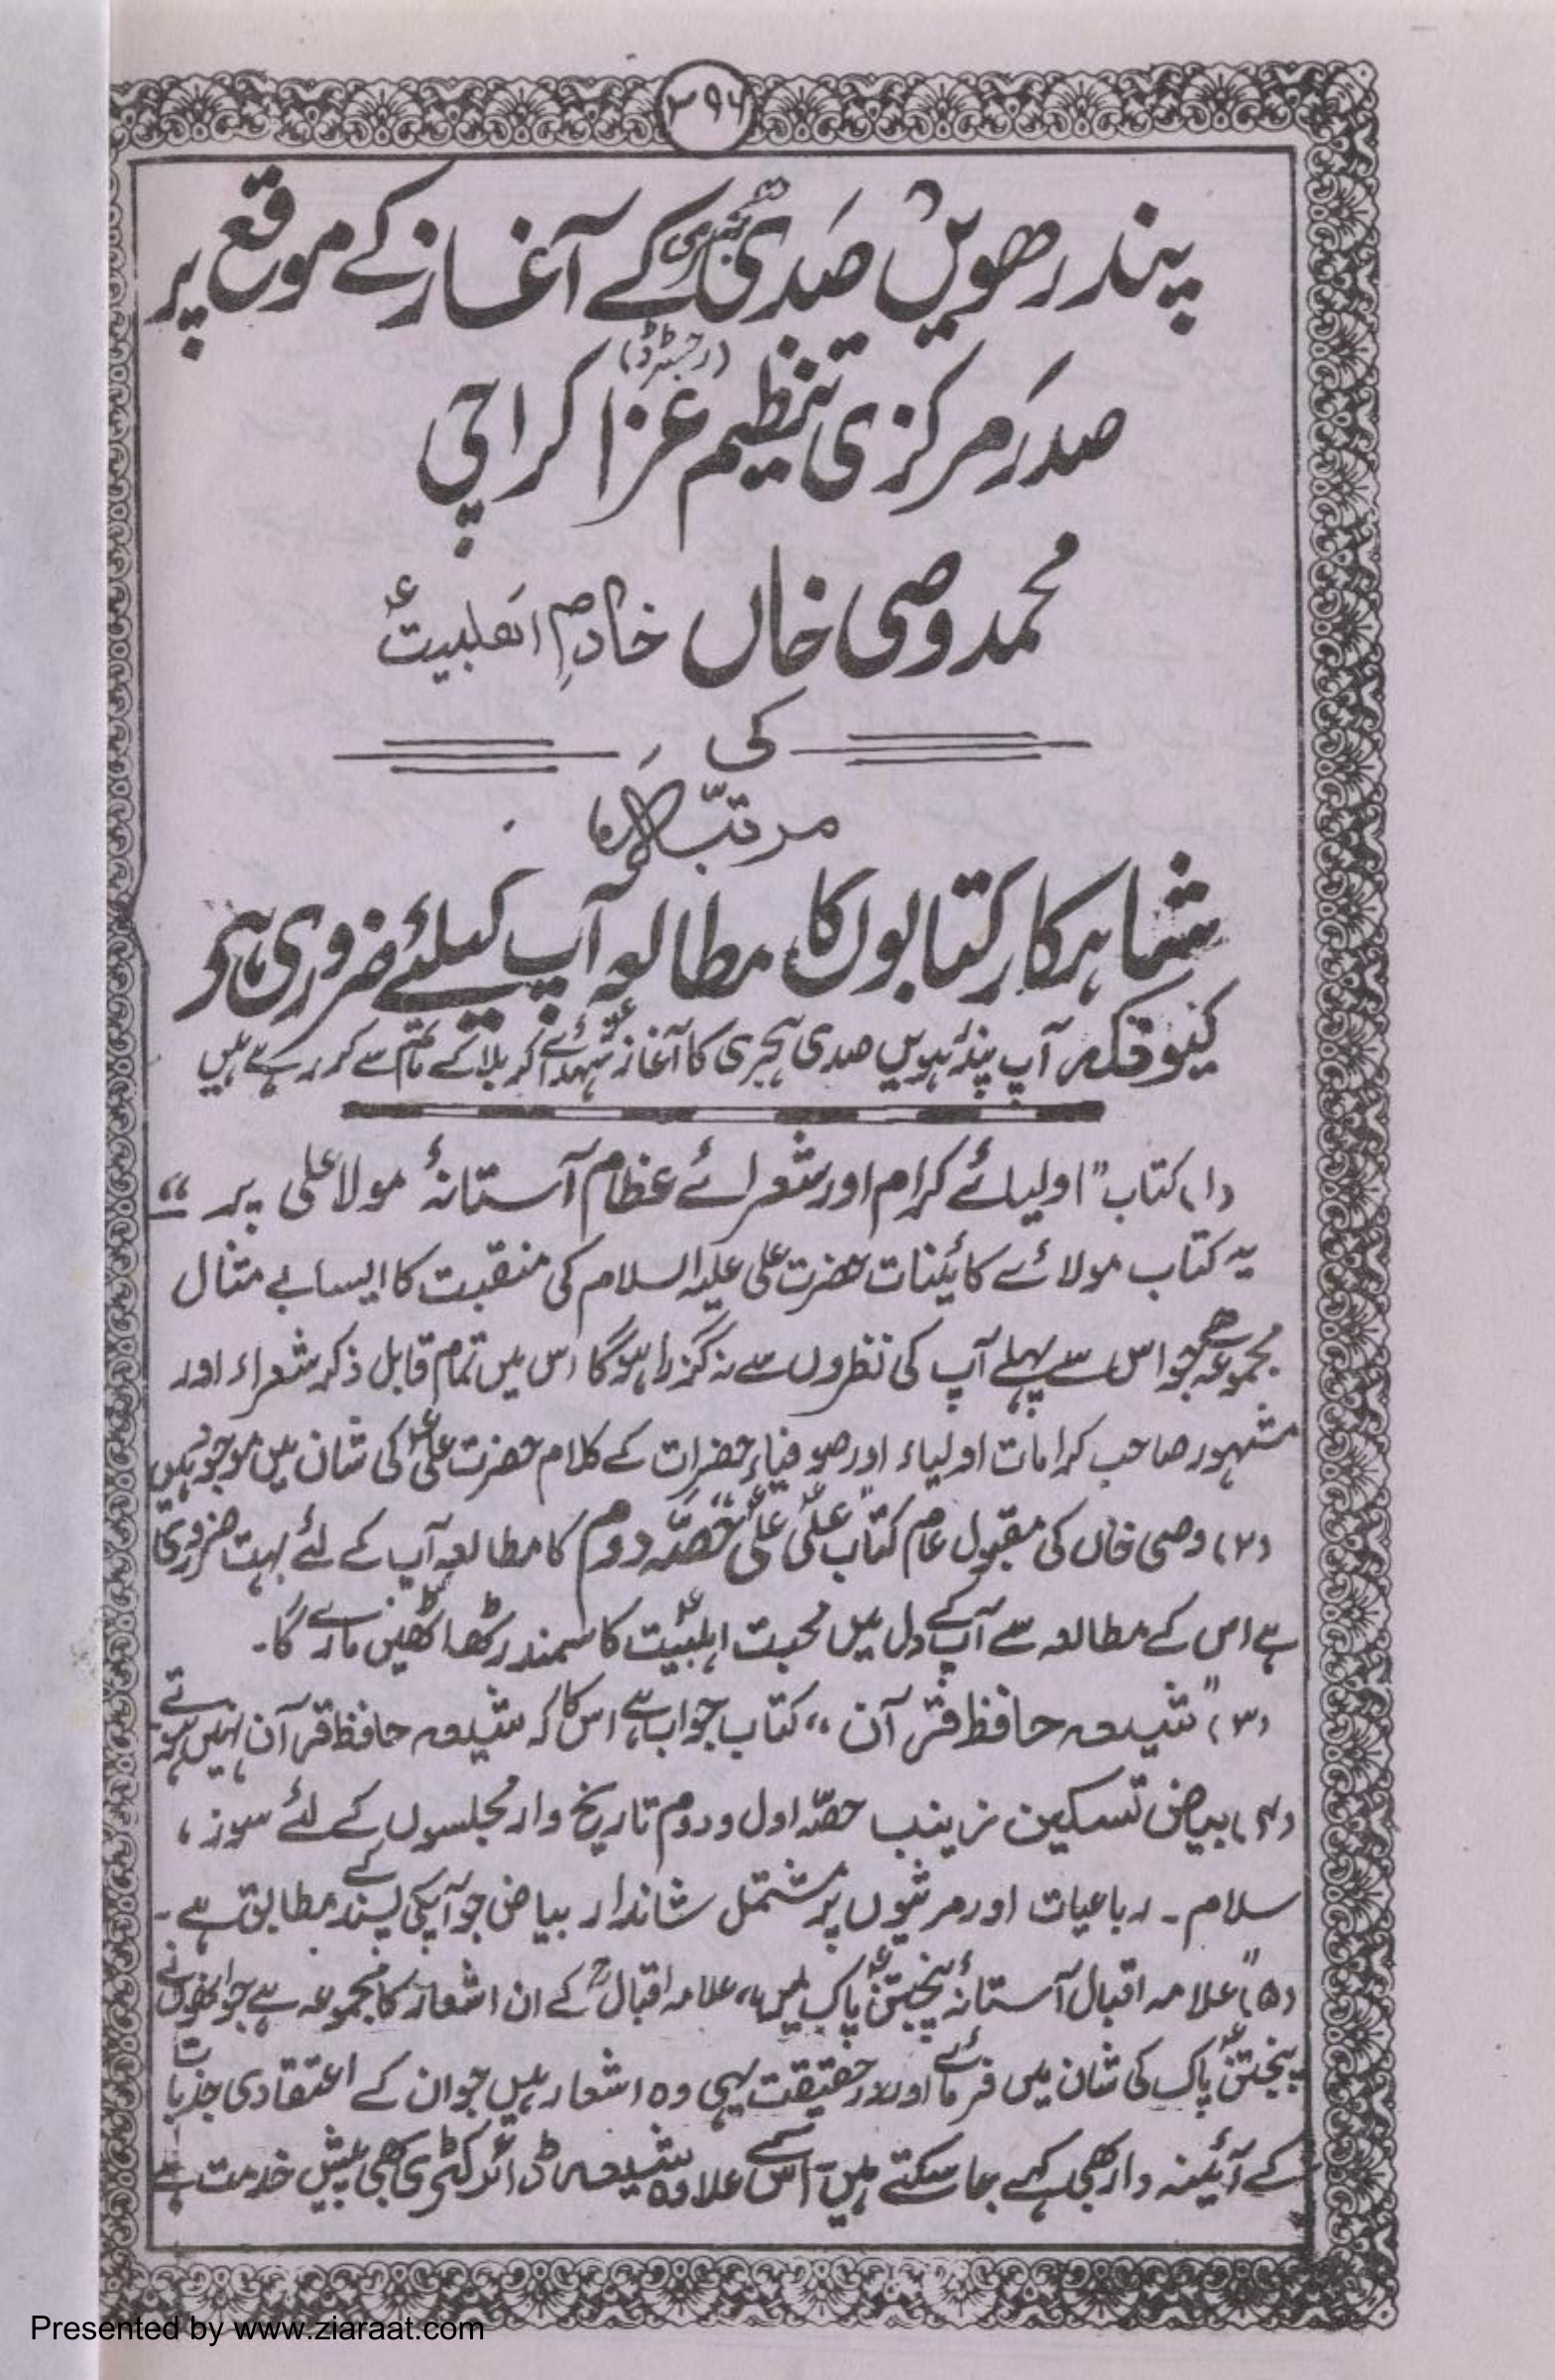 ۳۹۶
پندرھویں صدی ہجری کے آغاز کے موقع پر
صدر مرکزی تنظیم عزا (رجسٹرڈ) کراچی
محمد وصی خاں خادمِ اھلبیتؑ
کی
مرتب کردہ
شاہکار کتابوں کا مطالعہ آپ کیلئے ضروری ہے
کیونکہ آپ پندرہویں صدی ہجری کا آغاز شہدائے کربلا کے ماتم سے کر رہے ہیں
(۱) کتاب "اولیائے کرام اور شعرائے عظام آستانۂ مولا علیؑ پر"
یہ کتاب مولائے کائینات حضرت علی علیہ السلام کی منقبت کا ایسا بے مثال
مجموعہ ھے جو اس سے پہلے آپ کی نظروں سے نہ گزرا ہوگا اس میں تمام قابل ذکر شعراء اور
مشہور صاحب کرامات اولیاء اور صوفیاء حضرات کے کلام حضرت علیؑ کی شان میں موجود ہیں
(۲) وصی خاں کی مقبول عام کتاب "علیؑ علیؑ" حصّہ دوم کا مطالعہ آپ کے لئے بہت ضروری
ہے اس کے مطالعہ سے آپ کے دل میں محبت اہلبیتؑ کا سمندر ٹھاٹھیں مارے گا۔
(۳) "شیعہ حافظ قرآن" کتاب جواب ہے اس کا کہ شیعہ حافظ قرآن نہیں ہوتے
(۴) بیاض تسکین زینب حصّہ اول و دوم تاریخ وار مجلسوں کے لئے سوز،
سلام۔ رباعیات اور مرثیوں پر مشتمل شاندار بیاض جو آپکی پسند کے مطابق ہے۔
(۵) "علامہ اقبال آستانۂ پنجتنؑ پاک میں" علامہ اقبالؒ کے ان اشعار کا مجموعہ ہے جو انھوں نے
پنجتنؑ پاک کی شان میں فرمائے اور درحقیقت یہی وہ اشعار ہیں جو ان کے اعتقادی جذبات
کے آئینہ دار بھی کہے جا سکتے ہیں۔ اس کے علاوہ شیعہ ڈائرکٹری بھی پیش خدمت ہے
Presented by www.ziaraat.com